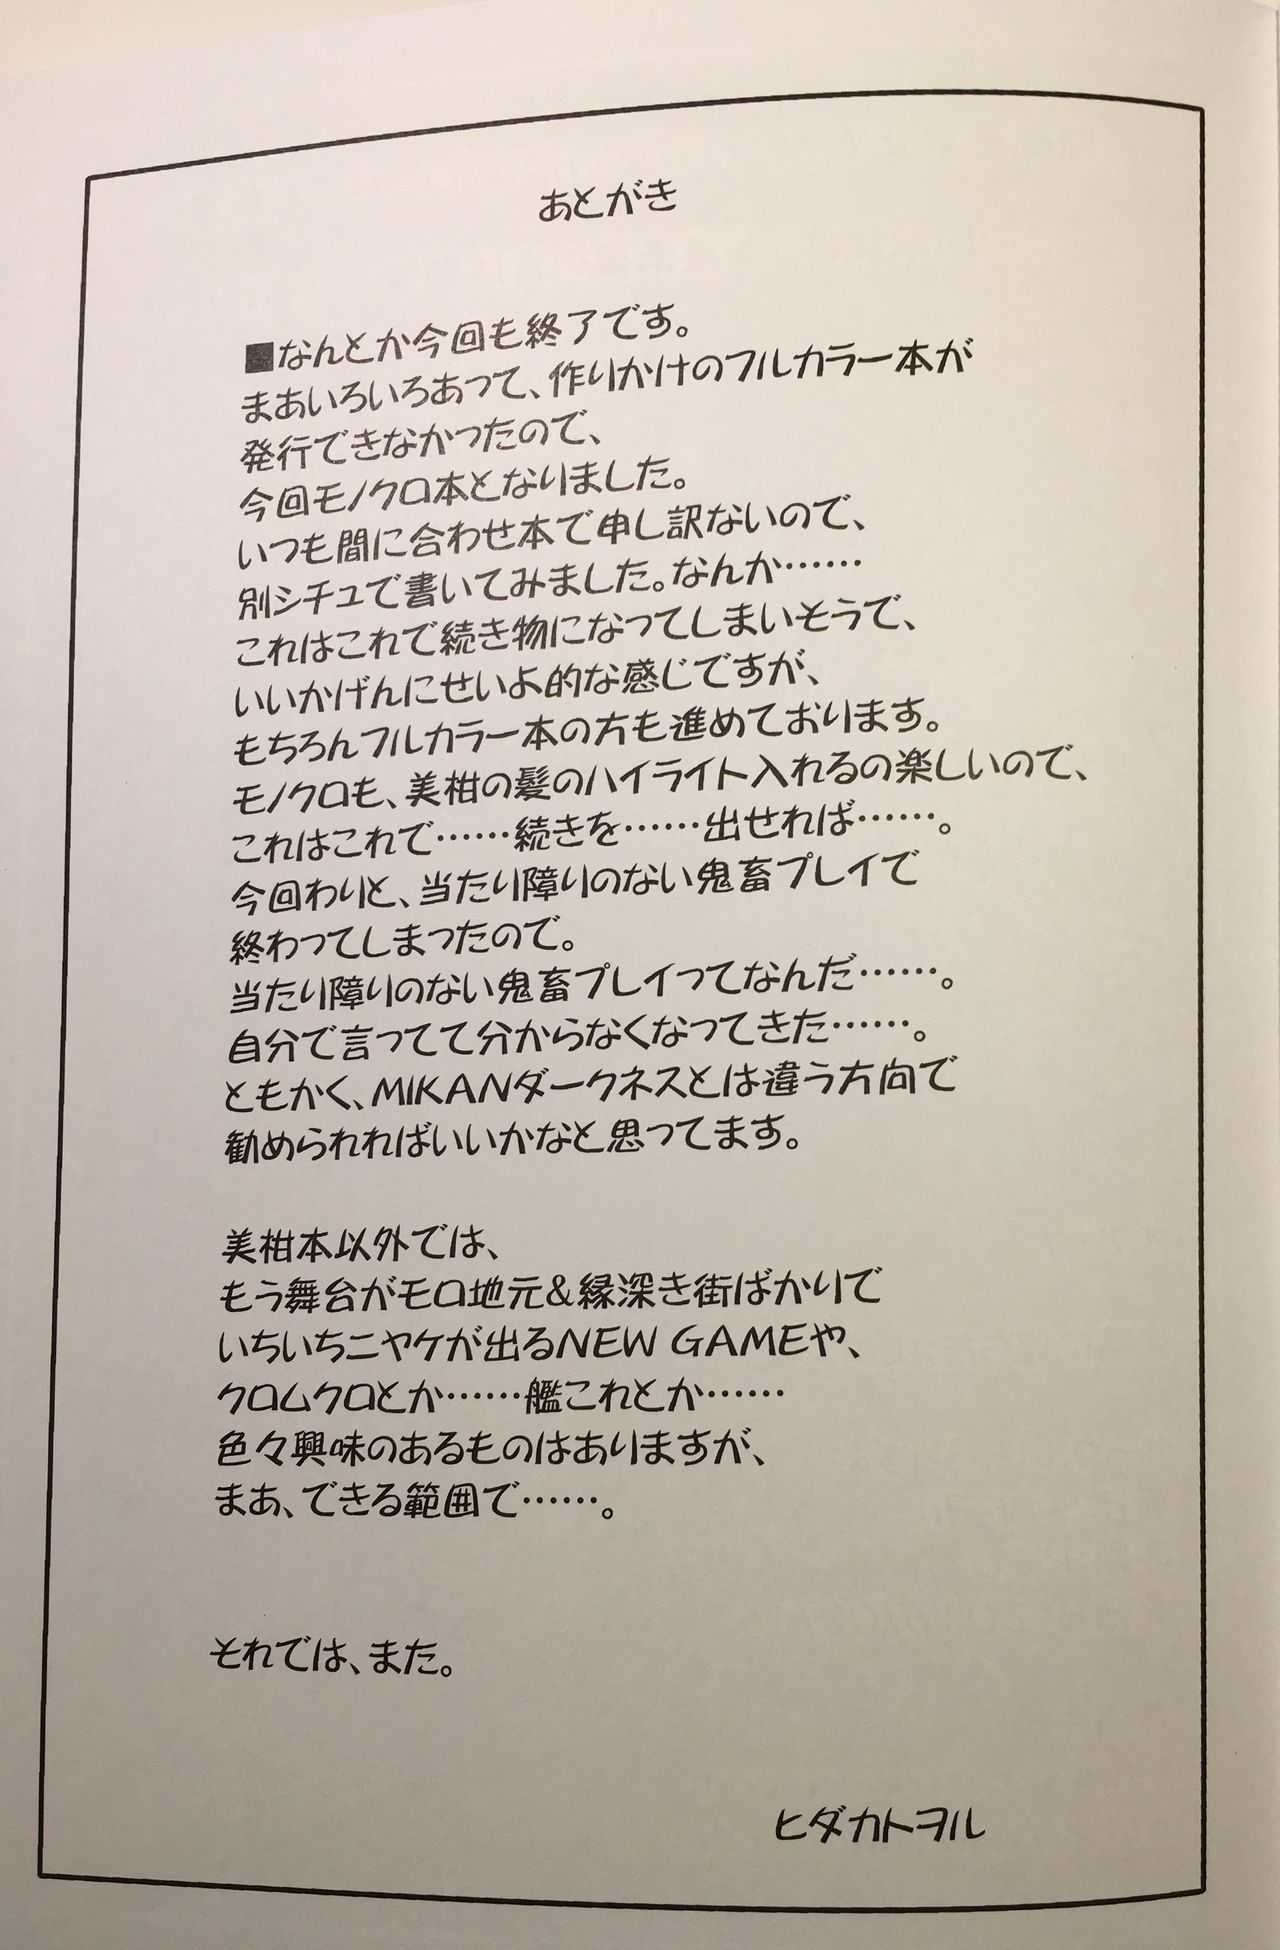 あとがき
■なんとか今回も終了です。
まあいろいろあって、作りかけのフルカラー本が
発行できなかったので、
今回モノクロ本となりました。
いつも間に合わせ本で申し訳ないので、
別シチュで書いてみました。なんか……
これはこれで続き物になってしまいそうで、
いいかげんにせいよ的な感じですが、
もちろんフルカラー本の方も進めております。
モノクロも、美柑の髪のハイライト入れるの楽しいので、
これはこれで……続きを……出せれば……。
今回わりと、当たり障りのない鬼畜プレイで
終わってしまったので。
当たり障りのない鬼畜プレイってなんだ……。
自分で言ってて分からなくなってきた……。
ともかく、MIKANダークネスとは違う方向で
勧められればいいかなと思ってます。
美柑本以外では、
もう舞台がモロ地元&縁深き街ばかりで
いちいちニヤケが出るNEW GAMEや、
クロムクロとか……艦これとか……
色々興味のあるものはありますが、
まあ、できる範囲で……。
それでは、また。
ヒダカトヲル